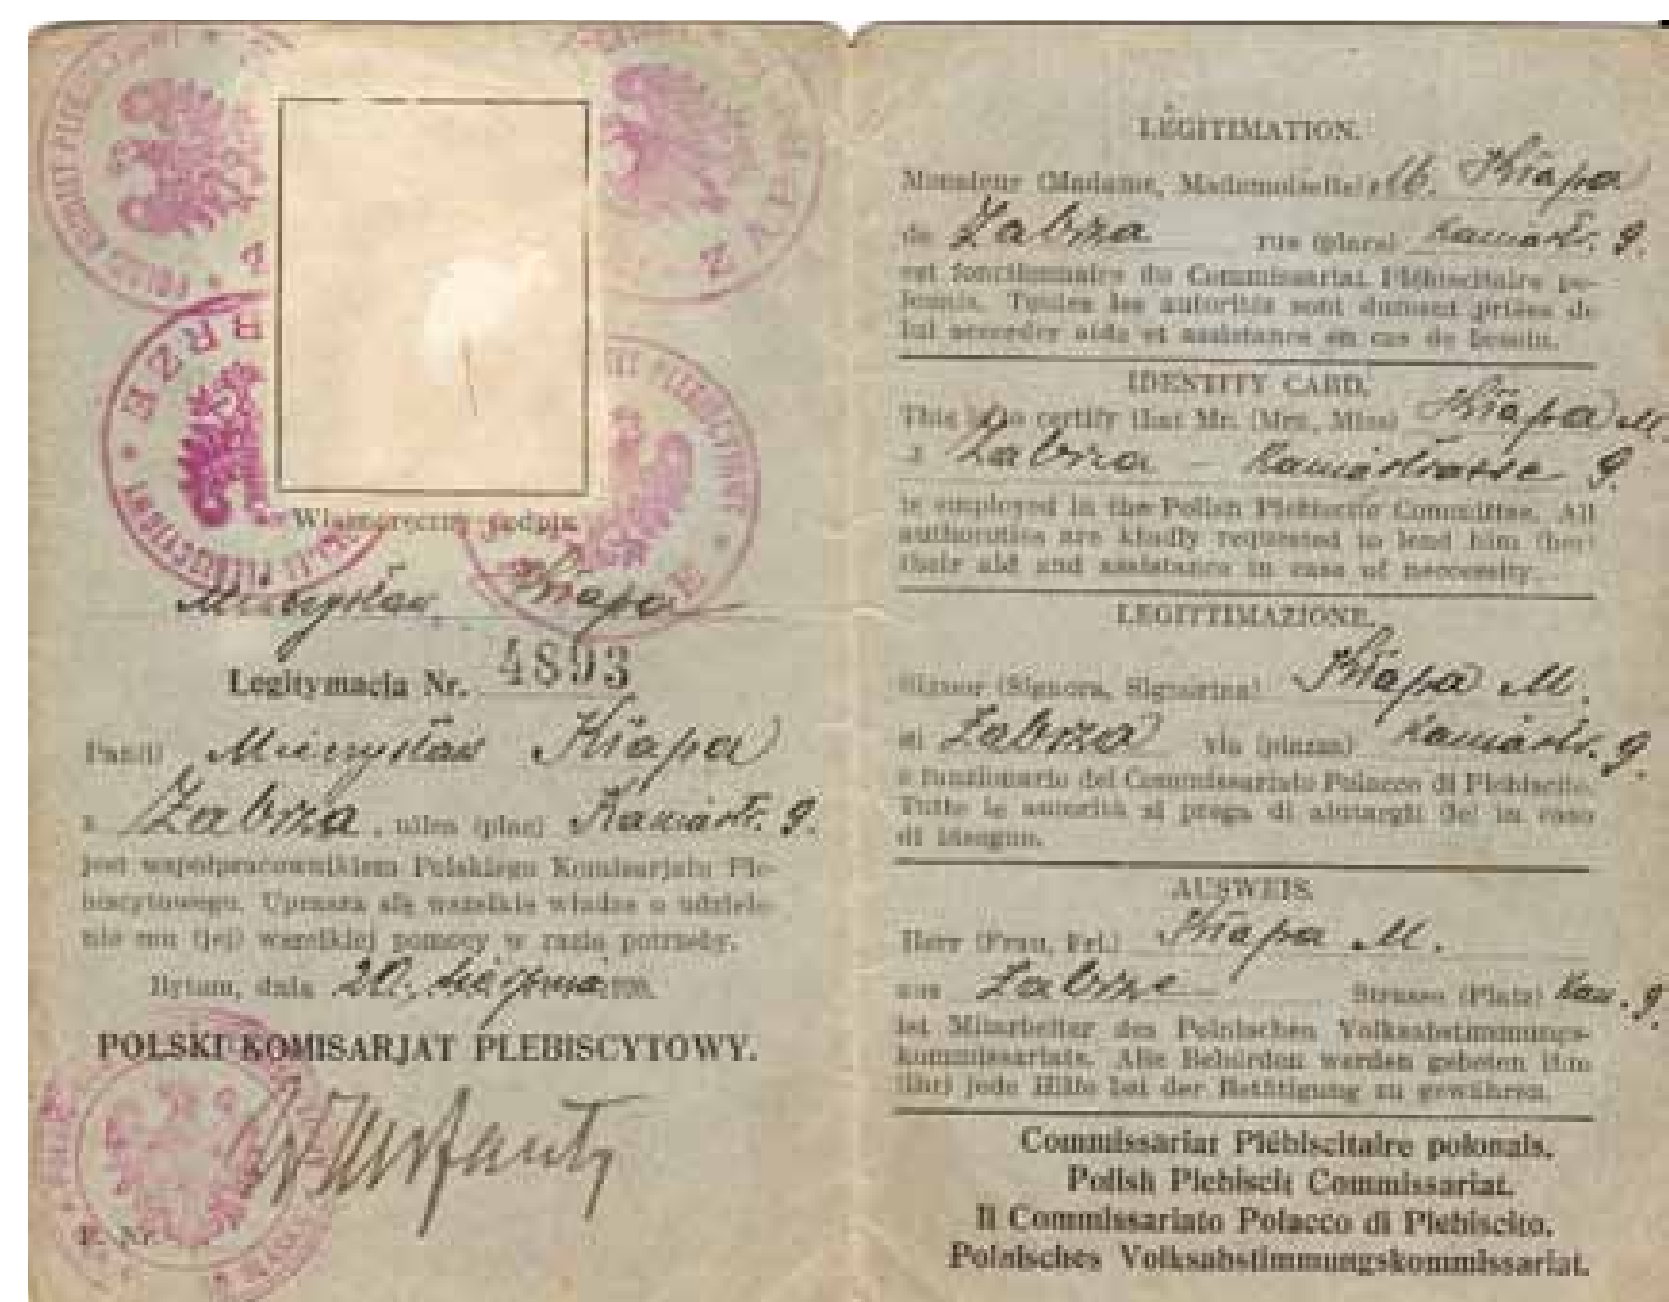 POLSKI KOMITET PLEBISCYTOWY
W ZABRZU
ZABRZE
KOMITET PLEBISCYTOWY
Własnoręczny podpis
Mieczysław Kłapa
Legitymacja Nr. 4893
Pan(i) Mieczysław Kłapa
z Zabrza, ulica (plac) Kaniastr. 9.
jest współpracownikiem Polskiego Komisarjatu Ple-
biscytowego. Uprasza się wszelkie władze o udziele-
nie mu (jej) wszelkiej pomocy w razie potrzeby.
Bytom, dnia 20. sierpnia 1920.
POLSKI KOMISARJAT PLEBISCYTOWY.
P. Nr.
LÉGITIMATION.
Monsieur (Madame, Mademoiselle) M. Kłapa
de Zabrza rue (place) Kaniastr. 9.
est fonctionnaire du Commissariat Plébiscitaire po-
lonais. Toutes les autorités sont dument priées de
lui accorder aide et assistance en cas de besoin.
IDENTITY CARD.
This is to certify that Mr. (Mrs., Miss) Kłapa M.
z Zabrza – Kaniastrasse 9.
is employed in the Polish Plebiscite Committee. All
authoroties are kindly requested to lend him (her)
their aid and assistance in case of neccessity.
LEGITTIMAZIONE.
Signor (Signora, Signorina) Kłapa M.
di Zabrza via (piazza) Kaniastr. 9.
e funzionario del Commissariato Polacco di Plebiscito.
Tutte le autorità si prega di aiutargli (le) in caso
di bisogno.
AUSWEIS.
Herr (Frau, Frl.) Kłapa M.
aus Zabrze Strasse (Platz) Kan. 9.
ist Mitarbeiter des Polnischen Volksabstimmungs-
kommissariats. Alle Behörden werden gebeten ihm
(ihr) jede Hilfe bei der Betätigung zu gewähren.
Commissariat Plébiscitaire polonais.
Polish Plebiscit Commissariat.
Il Commissariato Polacco di Plebiscito.
Polnisches Volksabstimmungskommissariat.